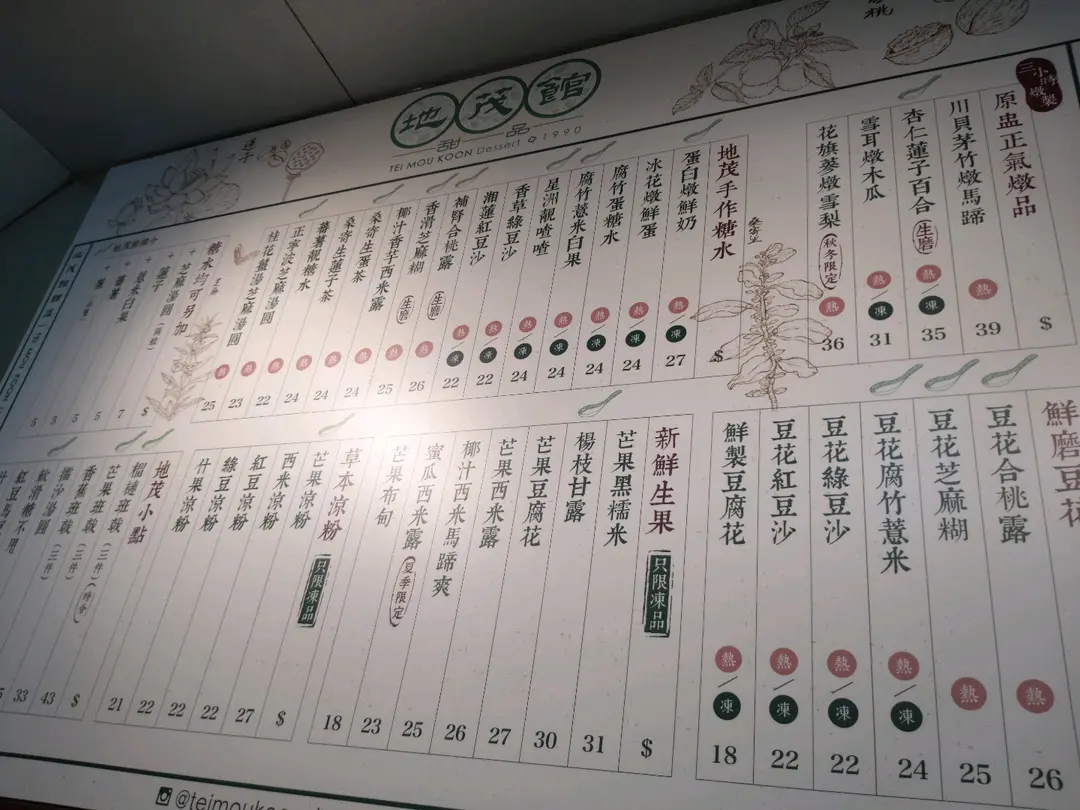 地茂館
甜品
TEI MOU KOON Dessert 1990
三小時燉製
原盅正氣燉品 $
川貝茅竹燉馬蹄 熱 39
杏仁蓮子百合(生磨) 熱/凍 35
雪耳燉木瓜 熱/凍 31
花旗蔘燉雪梨(秋冬限定) 熱 36
桑寄生
地茂手作糖水 $
蛋白燉鮮奶 熱/凍 27
冰花燉鮮蛋 熱/凍 24
腐竹蛋糖水 熱/凍 24
腐竹薏米白果 熱/凍 24
星洲靚喳喳 熱/凍 24
香草綠豆沙 熱/凍 22
湘蓮紅豆沙 熱/凍 22
補腎合桃露(生磨) 熱 26
香滑芝麻糊(生磨) 熱 25
椰汁香芋西米露 熱 24
桑寄生蛋茶 熱 24
桑寄生蓮子茶 熱 24
蕃薯靚糖水 熱 22
正寧波芝麻湯圓 熱 23
桂花薑湯芝麻湯圓 熱 25
糖水均可另加 $
+芝麻湯圓 7
鮮磨豆花
豆花合桃露 熱 26
豆花芝麻糊 熱 25
豆花腐竹薏米 熱/凍 24
豆花綠豆沙 熱/凍 22
豆花紅豆沙 熱/凍 22
鮮製豆腐花 熱/凍 18
新鮮生果 只限凍品 $
芒果黑糯米 31
楊枝甘露 30
芒果豆腐花 27
芒果西米露 26
椰汁西米馬蹄爽 25
蜜瓜西米露(夏季限定) 23
芒果布甸 18
草本涼粉 只限凍品 $
芒果涼粉 27
西米涼粉 22
紅豆涼粉 22
綠豆涼粉 22
什果涼粉 21
地茂小點 $
榴槤班戟 43
芒果班戟(三件) 33
香蕉班戟(三件)
擂沙湯圓(三件)
軟滑糖不甩
@teimoukoon